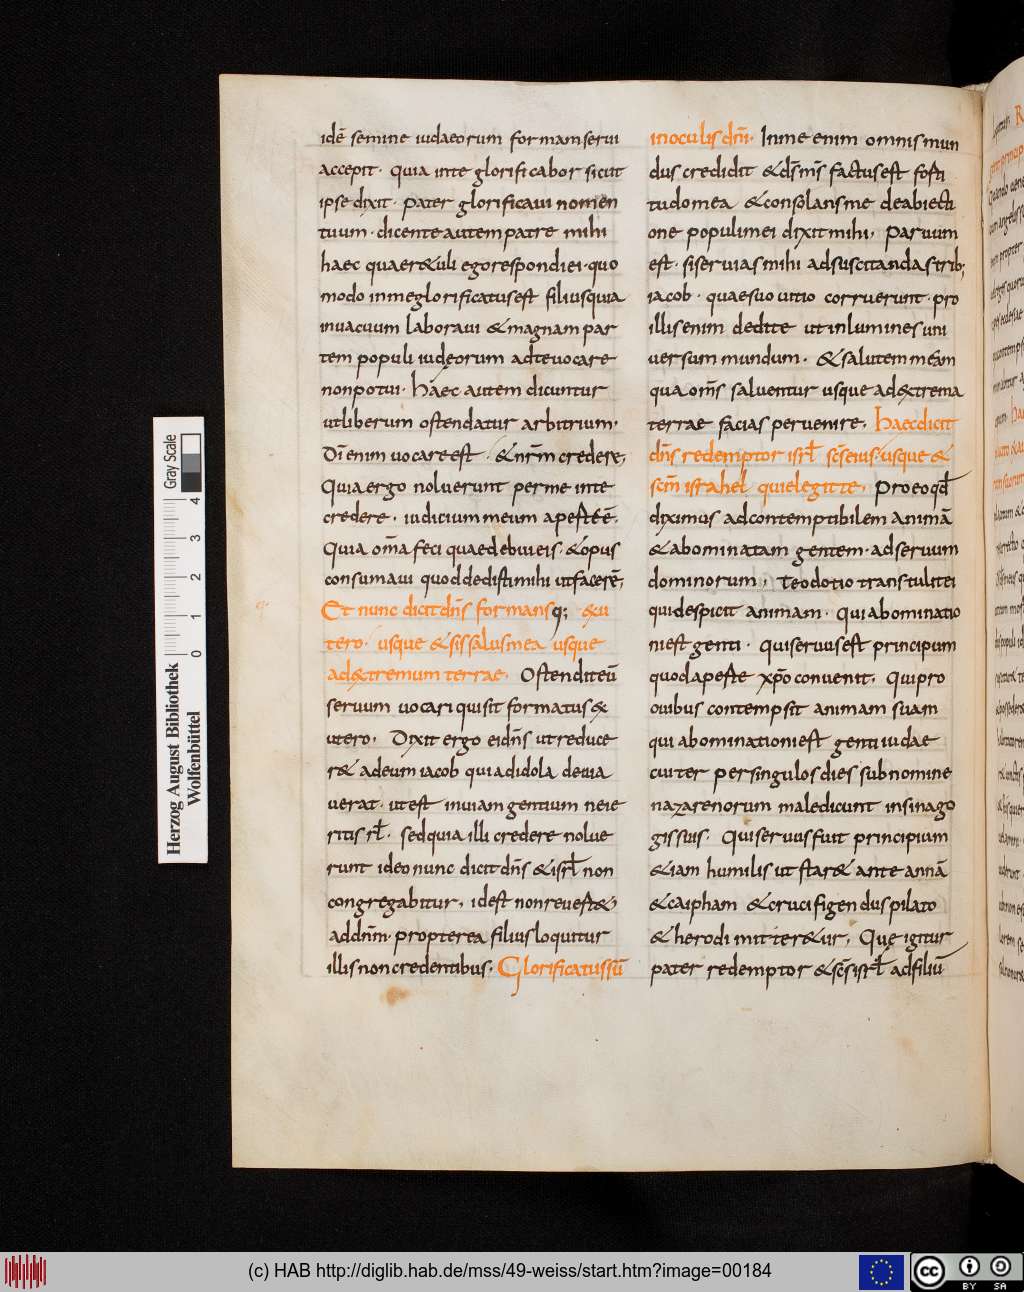 idē semine iudaeorum formam servi
accepit. quia in te glorificabor sicut
ipse dixit. pater glorificavi nomen
tuum. dicente autem patre mihi
haec quaer&uli ego respondi ei. quo
modo in me glorificatus est filius quia
in vacuum laboravi & magnam par
tem populi iudęorum ad te vocare
non potui. Haec autem dicuntur
ut liberum ostendatur arbitrium.
Dī enim vocare est. & nrm̄ credere,
Quia ergo noluerunt per me in te
credere. iudicium meum ape stē ē.
Quia om̄a feci quae debui eis. & opus
consumavi quod dedisti mihi ut facerē,
Et nunc dicit dn̄s formans q; ex u
tero. usque & sis salus mea usque
ad extremum terrae. Ostendit eū
servum vocari qui sit formatus ex
utero. Dixit ergo ei dn̄s ut reduce
r& ad eum iacob qui ad idola devia
verat. ut est in viam gentium ne ie
ritis rł. sed quia illi credere nolue
runt ideo nunc dicit dn̄s & isrł non
congregabitur, id est non revest&,
ad dnm̄. propterea filius loquitur
illis non credentibus. Glorificatus sū
in oculis dn̄i. In me enim omnis mun
dus credidit & ds̄ ms̄ factus est forti
tudo mea & consolans me de abiecti
one populi mei dixit mihi. Parvum
est. si servias mihi ad suscitandas trib;
iacob. quae suo vitio corruerunt. pro
illis enim dedi te ut in lumine sis uni
versum mundum. & salutem meam
qua om̄s salventur usque ad extrema
terrae facias pervenire. Haec dicit
dn̄s redemptor isrł sc̄s eius. usque &
sc̄m israhel qui elegit te. Pro eo qđ
diximus ad contemptibilem animā
& abominatam gentem. ad servum
dominorum, Teodotio transtulit ei
qui despicit animam. Qui abominatio
ni est genti. qui servus est principum
quod a peste xp̄o convenit. Qui pro
ovibus contempsit animam suam
qui abominationi est genti iudae
cui ter per singulos dies sub nomine
nazarenorum maledicunt in sinago
gis suis. Qui servus fuit principium
& iam humilis ut star& ante annā
& caipham & crucifigendus pilato
& herodi mitter&ur. Quę igitur
pater redemptor & sc̄s isrł ad filiū
Herzog August Bibliothek
Wolfenbüttel
0 1 2 3 4
Gray Scale
(c) HAB http://diglib.hab.de/mss/49-weiss/start.htm?image=00184
cc BY SA